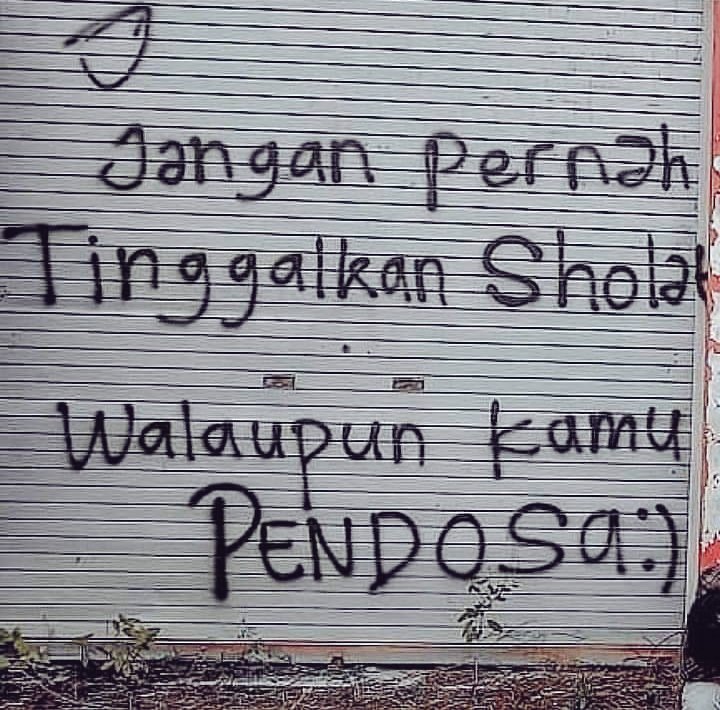 Jangan Pernah
Tinggalkan Sholat
Walaupun kamu
PENDOSa:)